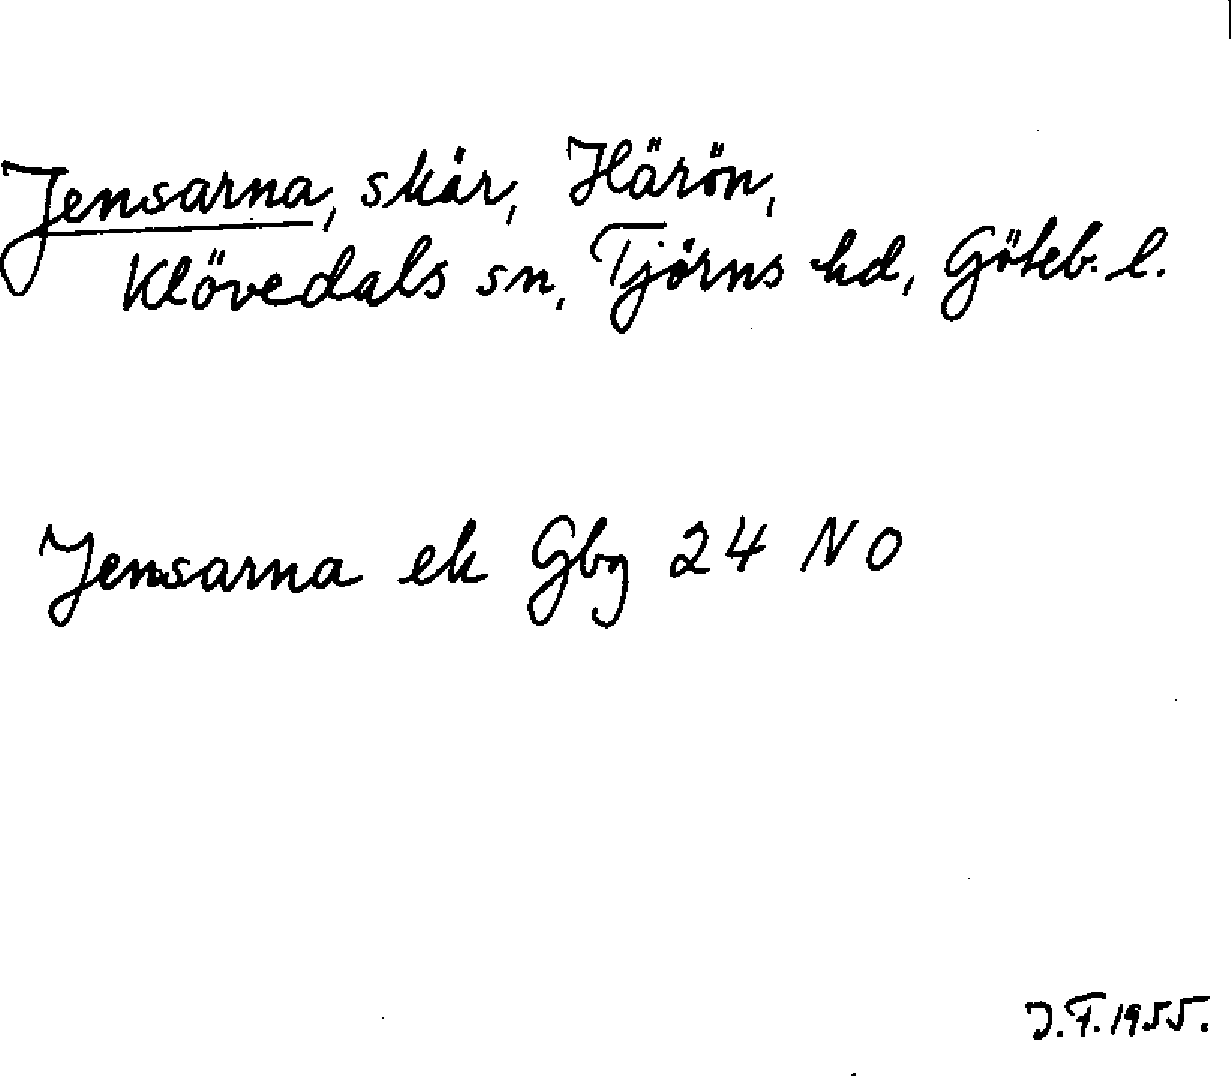 Jensarna, skär, Härön,
Klövedals sn, Tjörns hd, Göteb. l.
Jensarna ek Gbg 24 NO
J.F. 1955.